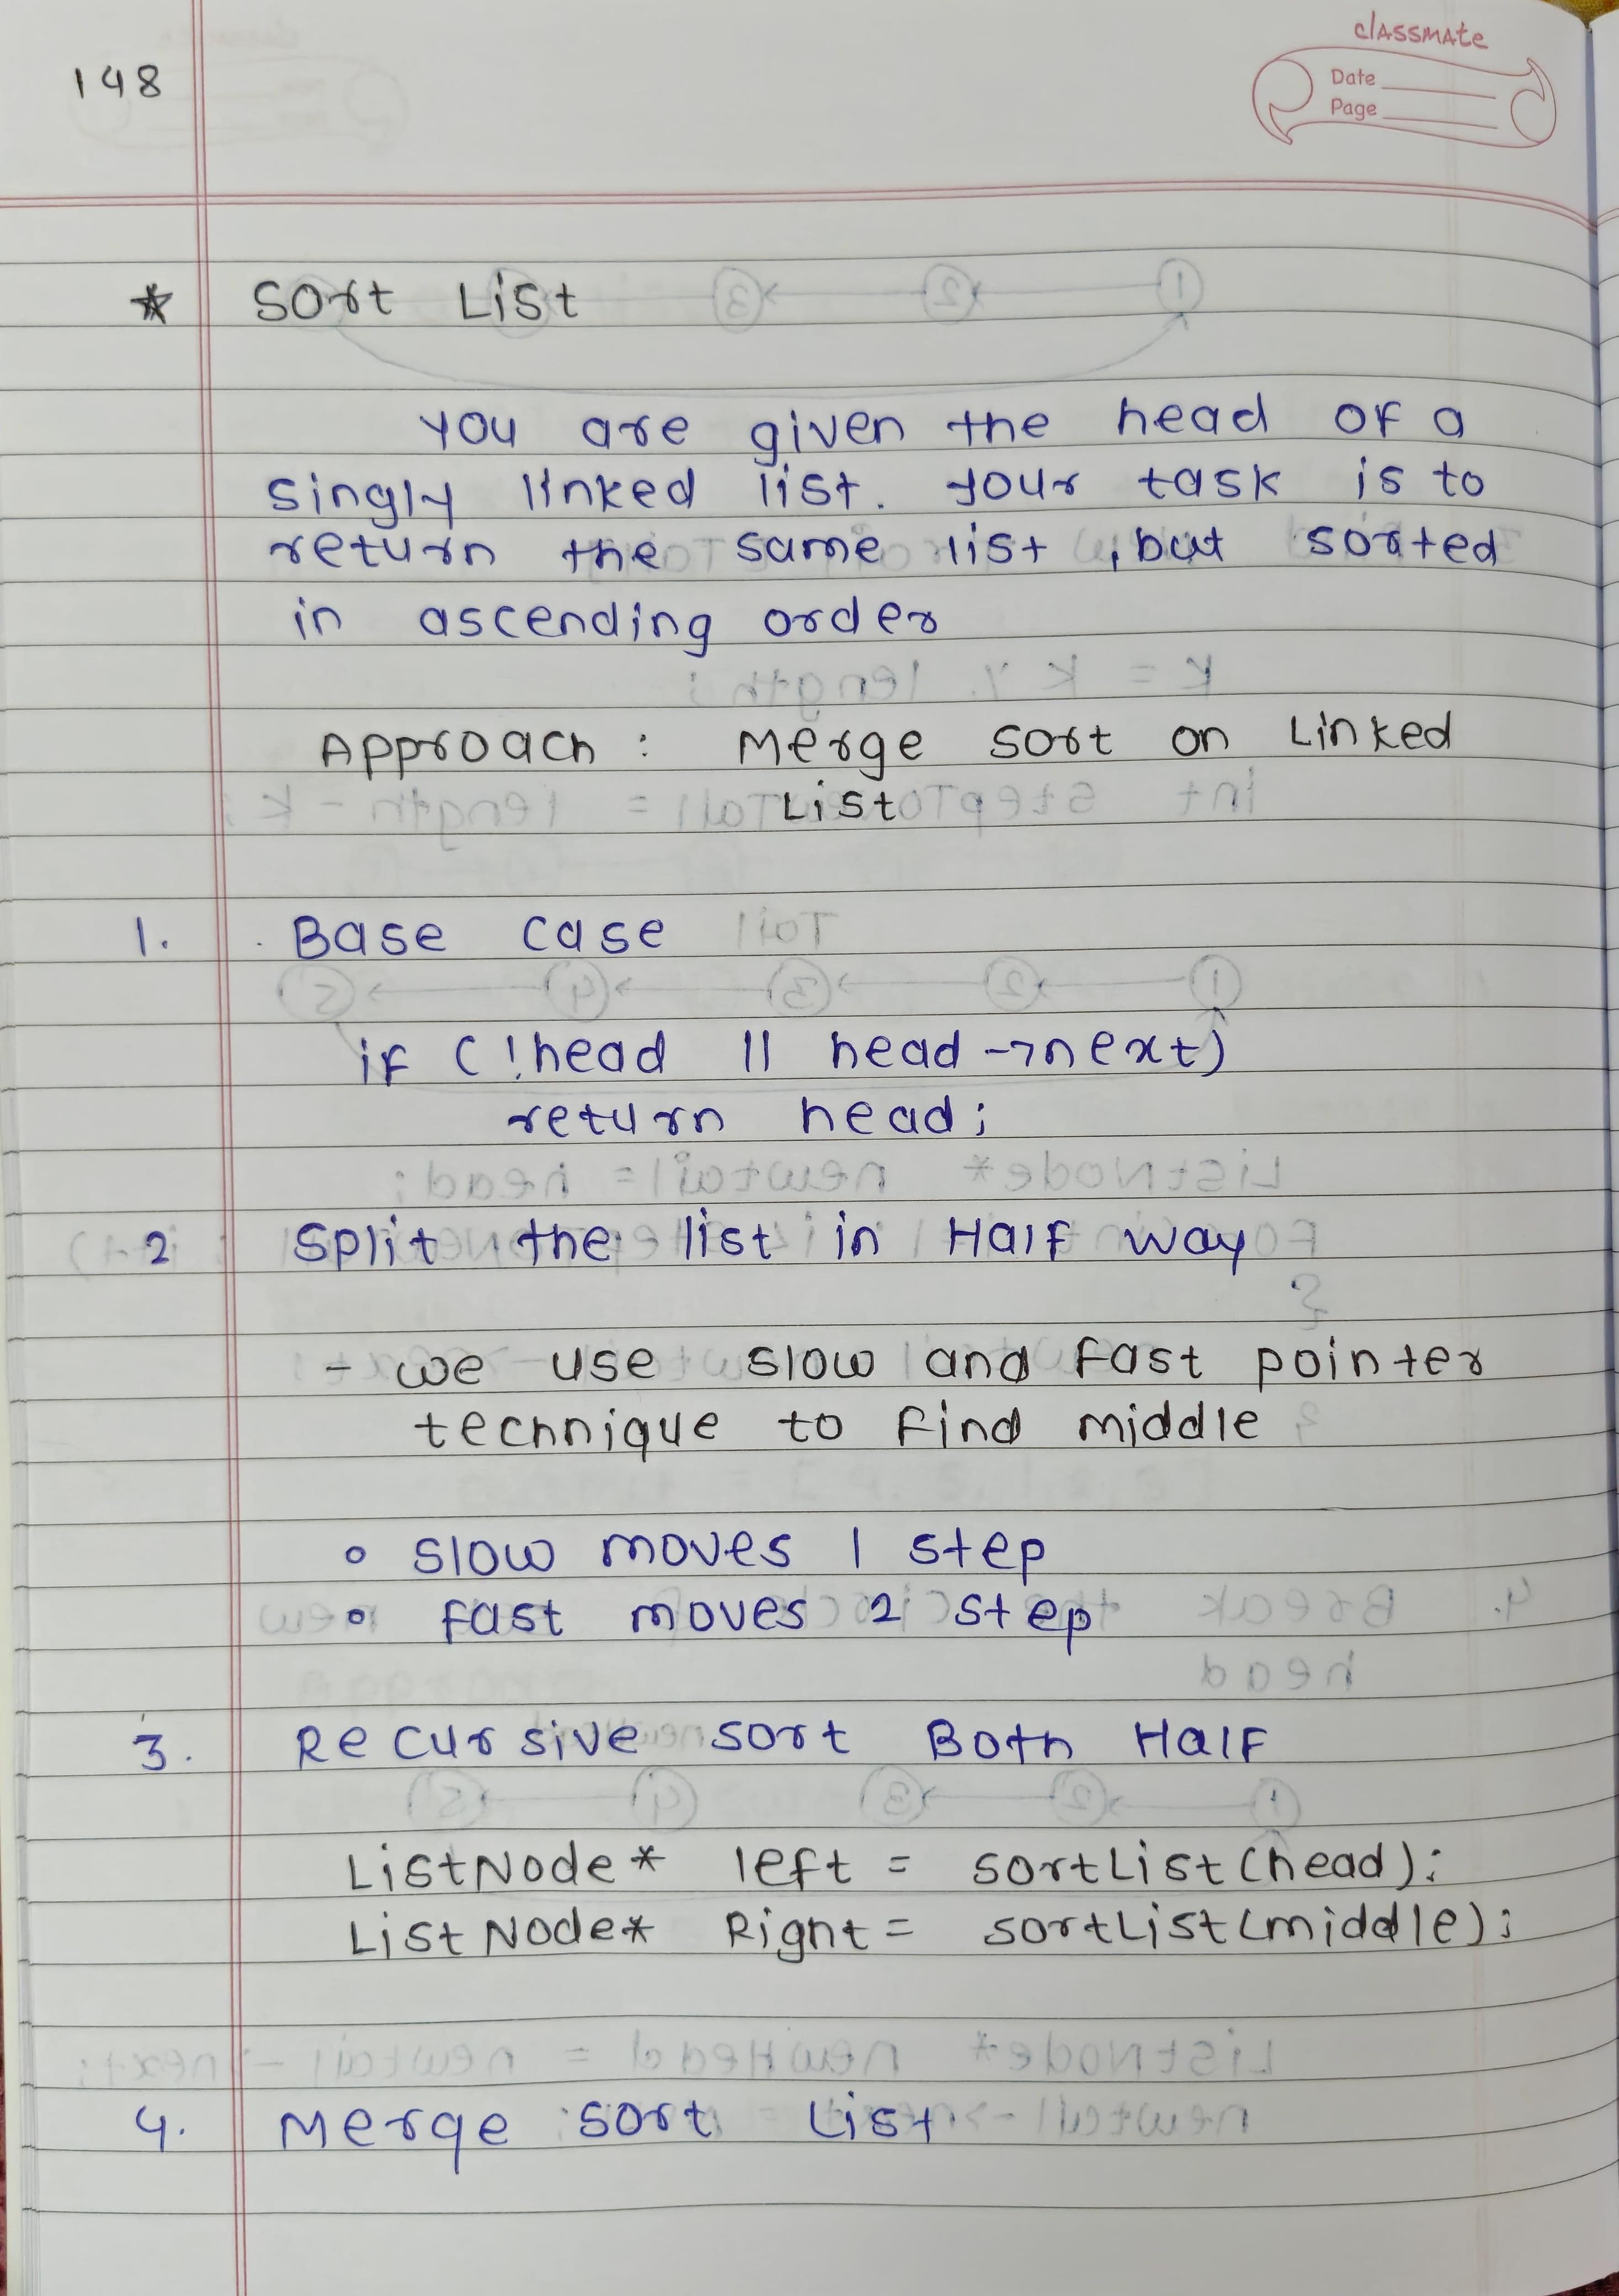 148
classmate
Date
Page
* Sort List
You are given the head of a
singly linked list. Your task is to
return the same list, but sorted
in ascending order
Approach : Merge Sort on Linked
List
1. Base Case
if (!head || head->next)
return head;
2 Split the list in Half way
- we use slow and fast pointer
technique to find middle
o slow moves 1 step
o fast moves 2 step
3. Recursive sort Both Half
ListNode* left = sortList(head);
ListNode* Right = sortList(middle);
4. Merge sort List